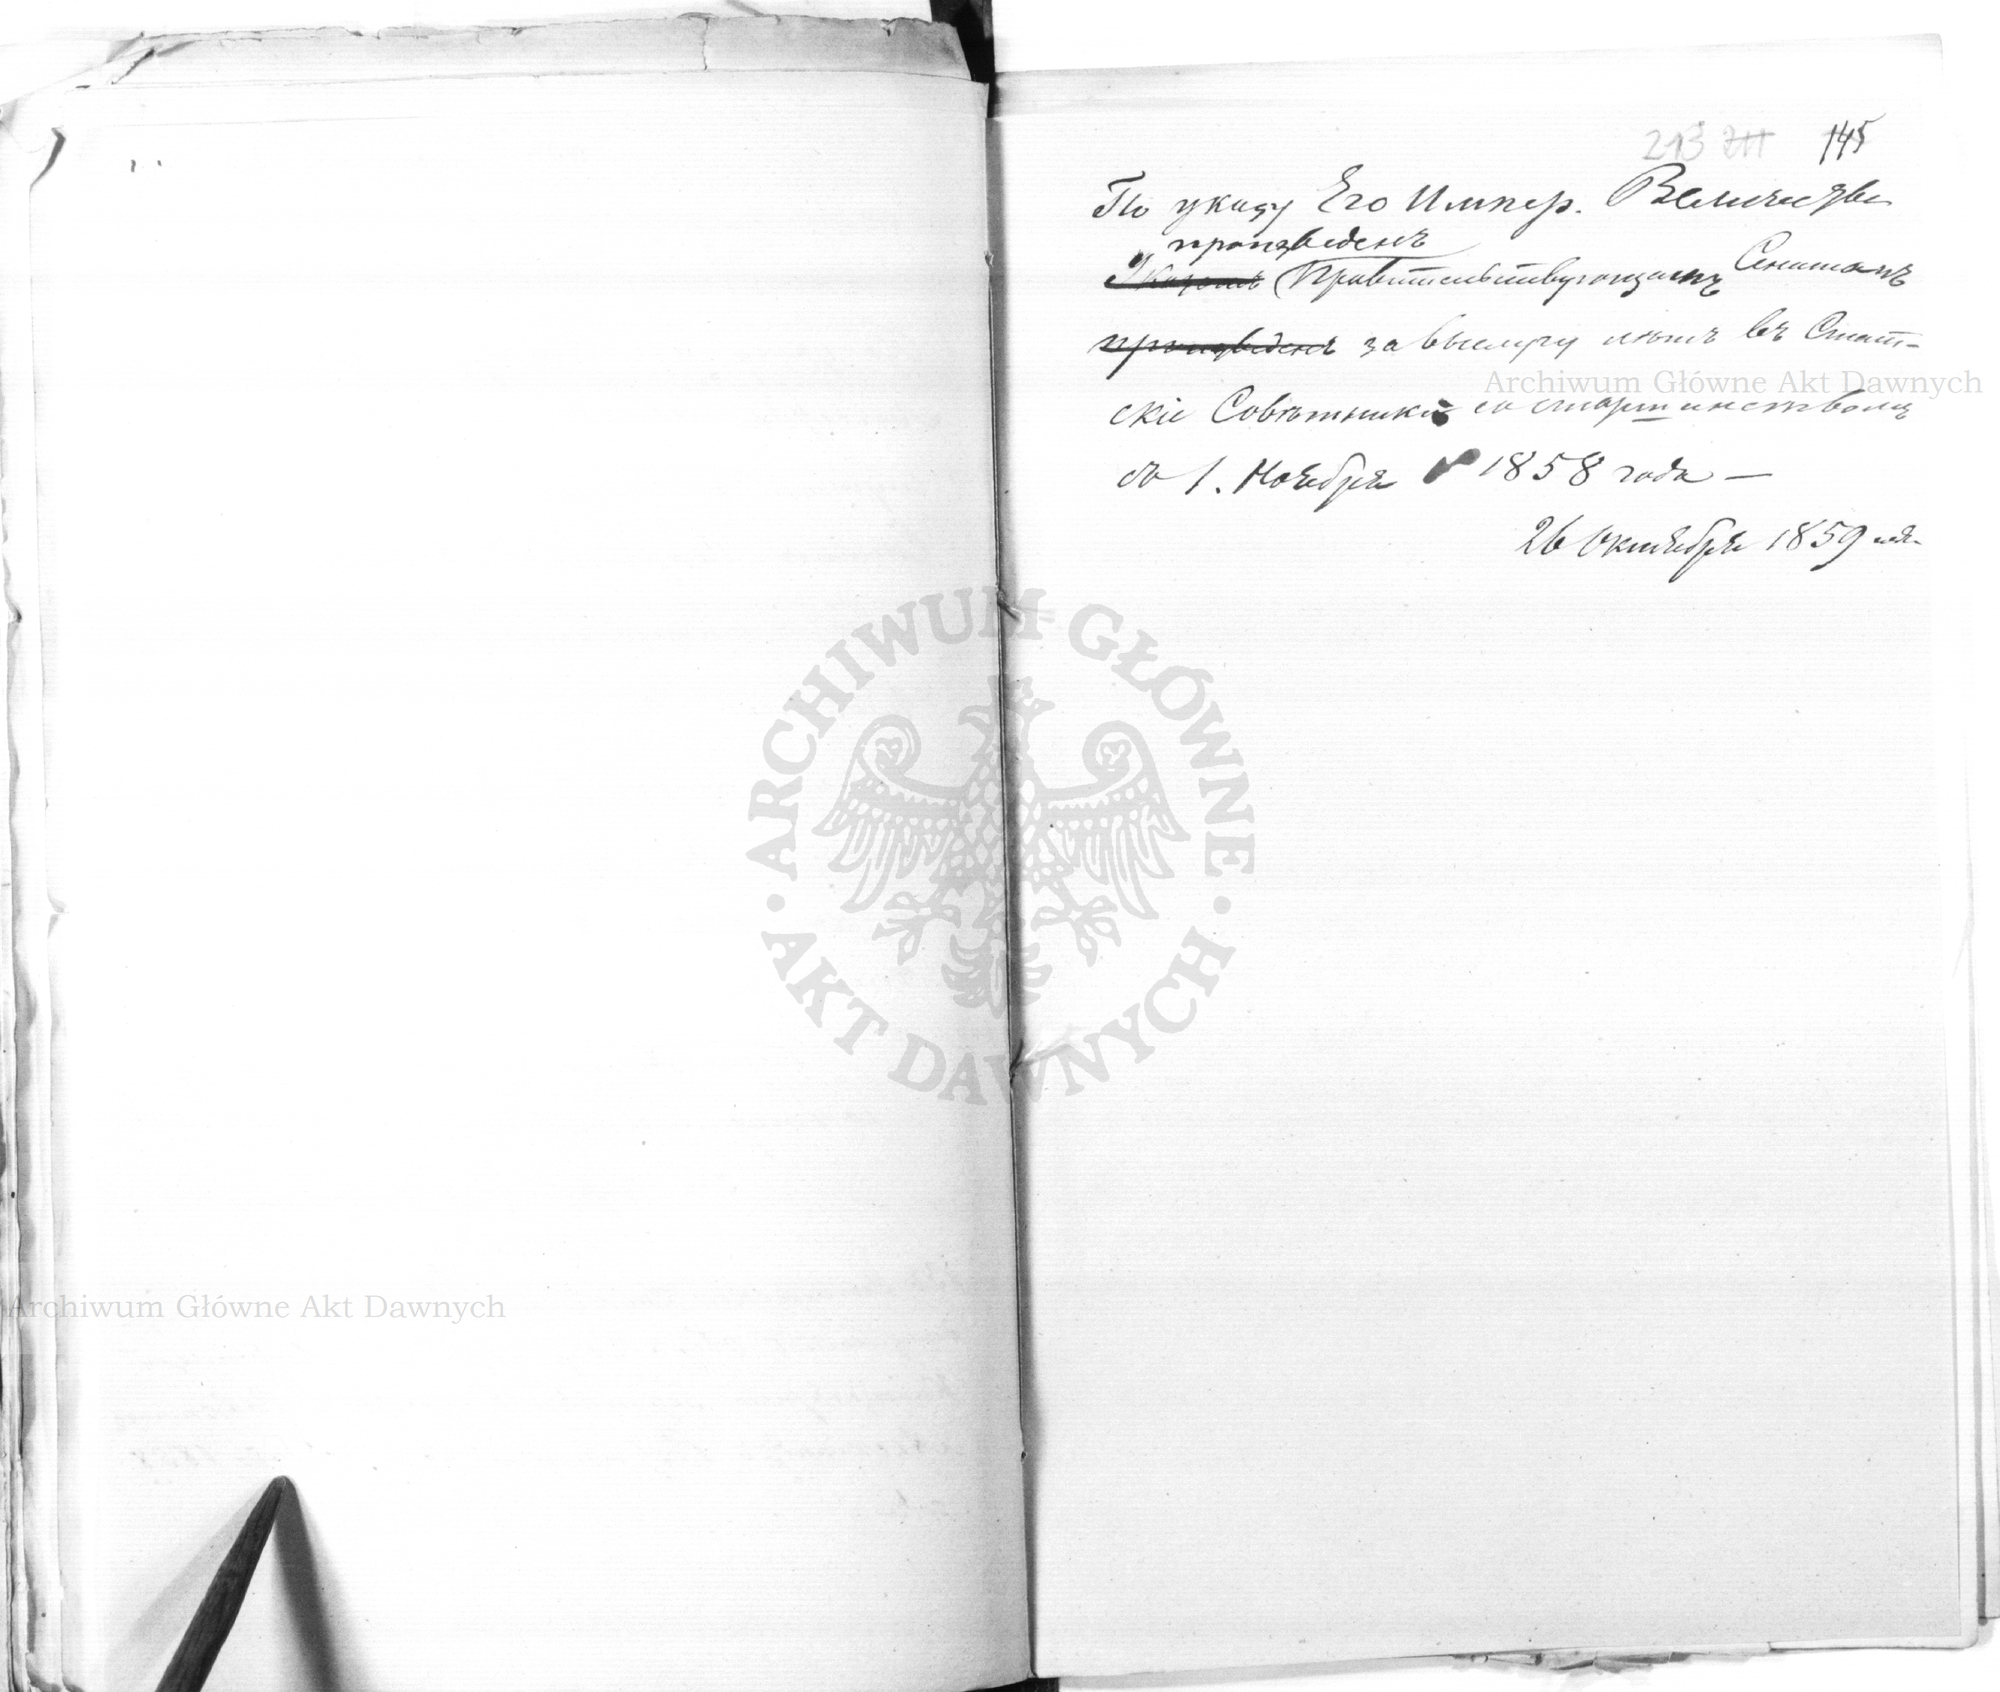 213 211 145
По указу Его Импер. Величества
произведенъ
Указомъ Правительствующимъ Сенатомъ
произведенъ за выслугу лѣтъ въ Стат-
скіе Совѣтники со старшинствомъ
съ 1. Ноября 1858 года —
26 Октября 1859
Archiwum Główne Akt Dawnych
ARCHIWUM GŁÓWNE AKT DAWNYCH
Archiwum Główne Akt Dawnych